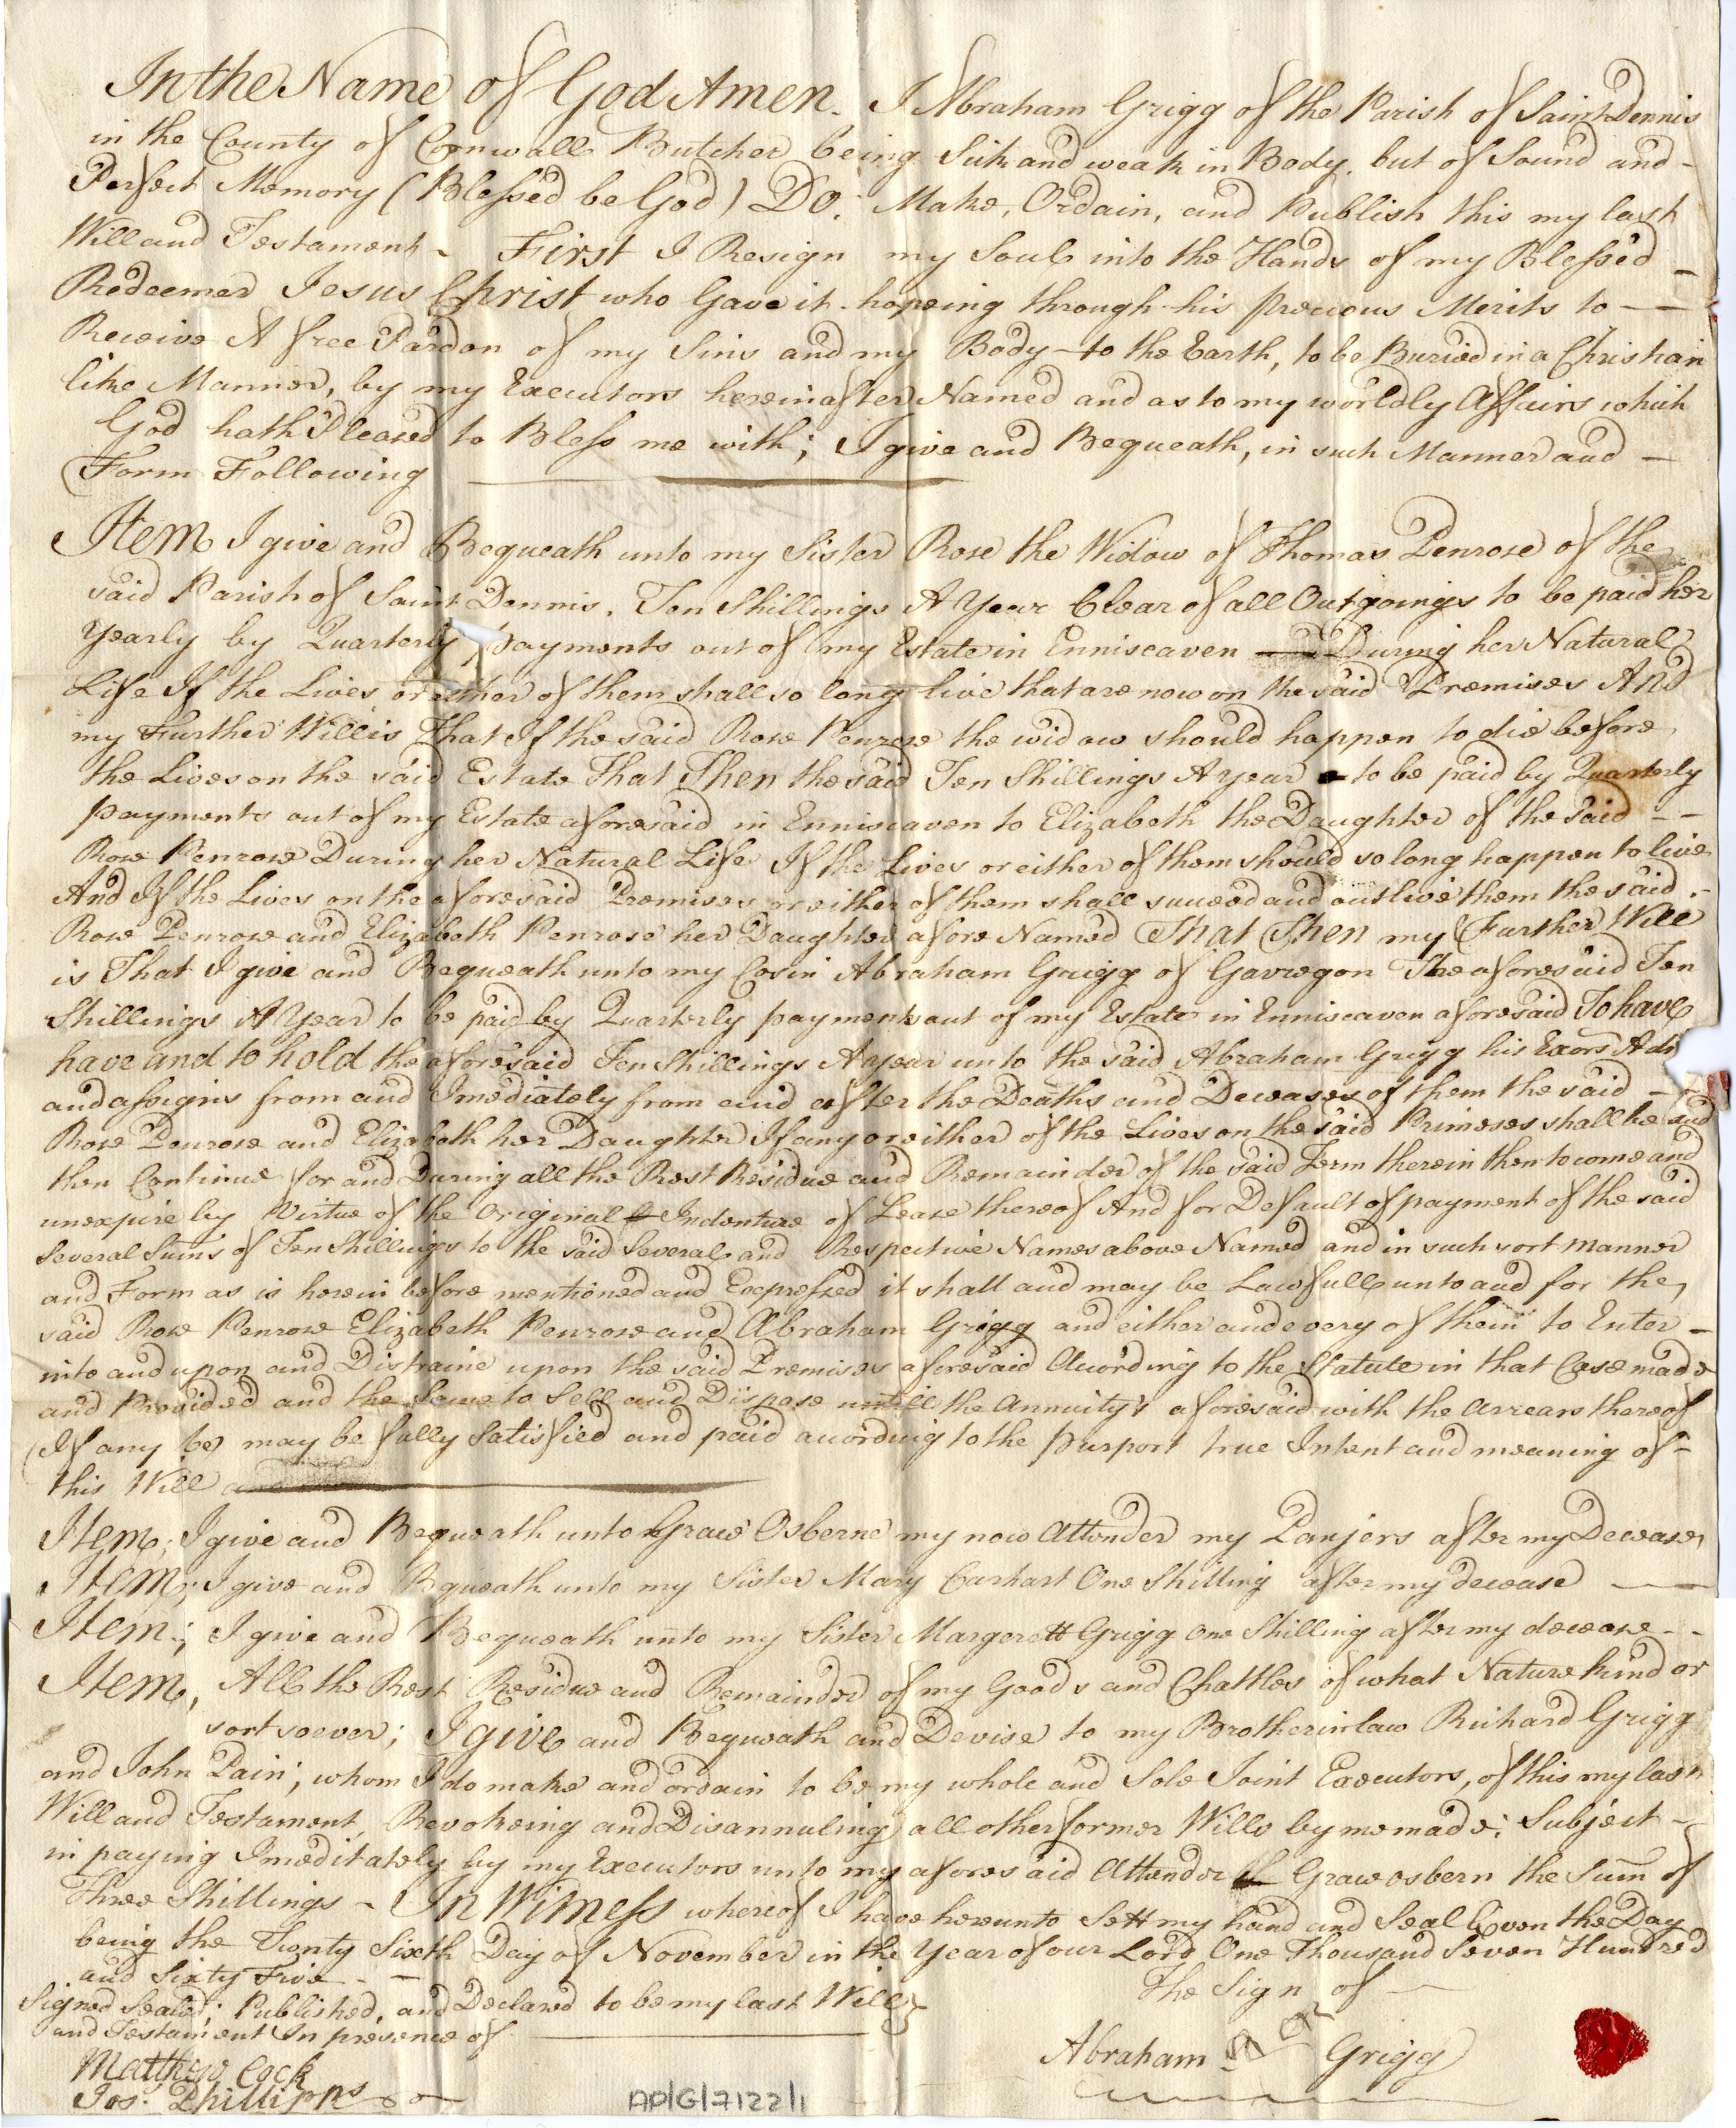 In the Name of God Amen. I Abraham Grigg of the Parish of Saint Dennis
in the County of Cornwall Butcher being Sick and weak in Body, but of Sound and -
Perfect Memory (Blessed be God) DO: Make, Ordain, and Publish this my last
Will and Testament - First I Resign my Soul into the Hands of my Blessed -
Redeemer Jesus Christ who Gave it hopeing through his precious Merits to -
Receive A free Pardon of my Sins and my Body to the Earth, to be Buried in a Christian
like Manner, by my Executors hereinafter Named and as to my worldly Affairs which
God hath Pleased to Bless me with; I give and Bequeath, in such Manner and -
Form Following
Item I give and Bequeath unto my Sister Rose the Widow of Thomas Penrose of the
said Parish of Saint Dennis. Ten Shillings A Year Clear of all Outgoings to be paid her
Yearly by Quarterly payments out of my Estate in Enniscaven During her Natural
Life If the Lives or either of them shall so long live that are now on the said Premises And
my Further Will is That If the said Rose Penrose the widow should happen to die before
the Lives on the said Estate That Then the said Ten Shillings A year to be paid by Quarterly
payments out of my Estate aforesaid in Enniscaven to Elizabeth the Daughter of the said - -
Rose Penrose During her Natural Life If the Lives or either of them should so long happen to live
And If the Lives on the aforesaid Premises or either of them shall succeed and outlive them the said -
Rose Penrose and Elizabeth Penrose her Daughter afore Named That Then my Further Will
is That I give and Bequeath unto my Cosin Abraham Grigg of Gavregon The aforesaid Ten
Shillings A Year to be paid by Quarterly payments out of my Estate in Enniscaven aforesaid To have
have and to hold the aforesaid Ten Shillings A year unto the said Abraham Grigg his Exors Adm
and assigns from and Imediately from and after the Deaths and Deceases of them the said -
Rose Penrose and Elizabeth her Daughter If any or either of the Lives on the said Primeses shall he and
then Continue for and During all the Rest Residue and Remainder of the said Term therein then to come and
unexpire by Virtue of the Original Indenture of Lease thereof And for Default of payment of the said
Several Sums of Ten Shillings to the said Several and Respective Names above Named and in such sort manner
and Form as is herein before mentioned and Expressed it shall and may be Lawfull unto and for the
said Rose Penrose Elizabeth Penrose and Abraham Grigg and either and every of them to Enter -
into and upon and Distraine upon the said Premises aforesaid According to the Statute in that Case made
and Provided and the Same to Sell and Dispose untill the Annuity's aforesaid with the Arrears thereof
(If any be) may be fully Satisfied and paid according to the purport true Intent and meaning of -
this Will
Item; I give and Bequeath unto Grace Osberne my now Attender my Panjers after my Decease
Item; I give and Bqueath unto my Sister Mary Carhart One Shilling after my decease
Item; I give and Bequeath unto my Sister Margerett Grigg One Shilling after my decease - -
Item, All the Rest Residue and Remainder of my Goods and Chattles of what Nature kind or
sort soever; I give and Bequeath and Devise to my Brotherinlaw Richard Grigg
and John Pain; whom I do make and ordain to be my whole and Sole Joint Executors, of this my last
Will and Testament, Revokeing and Disannuling all other former Wills by me made; Subject -
in paying Imeditately by my Executors unto my aforesaid Attender Grace osbern the Sum of
Three Shillings - In Witness whereof I have hereunto Sett my hand and Seal Even the Day
being the Twenty Sixth Day of November in the Year of our Lord One Thousand Seven Hundred
and Sixty Five - -
Signed Sealed; Published, and Declared to be my last Will
and Testament In presence of
The Sign of
Abraham Grigg
Matthew Cock
Jos: Phillipps
AP/G/7122/1